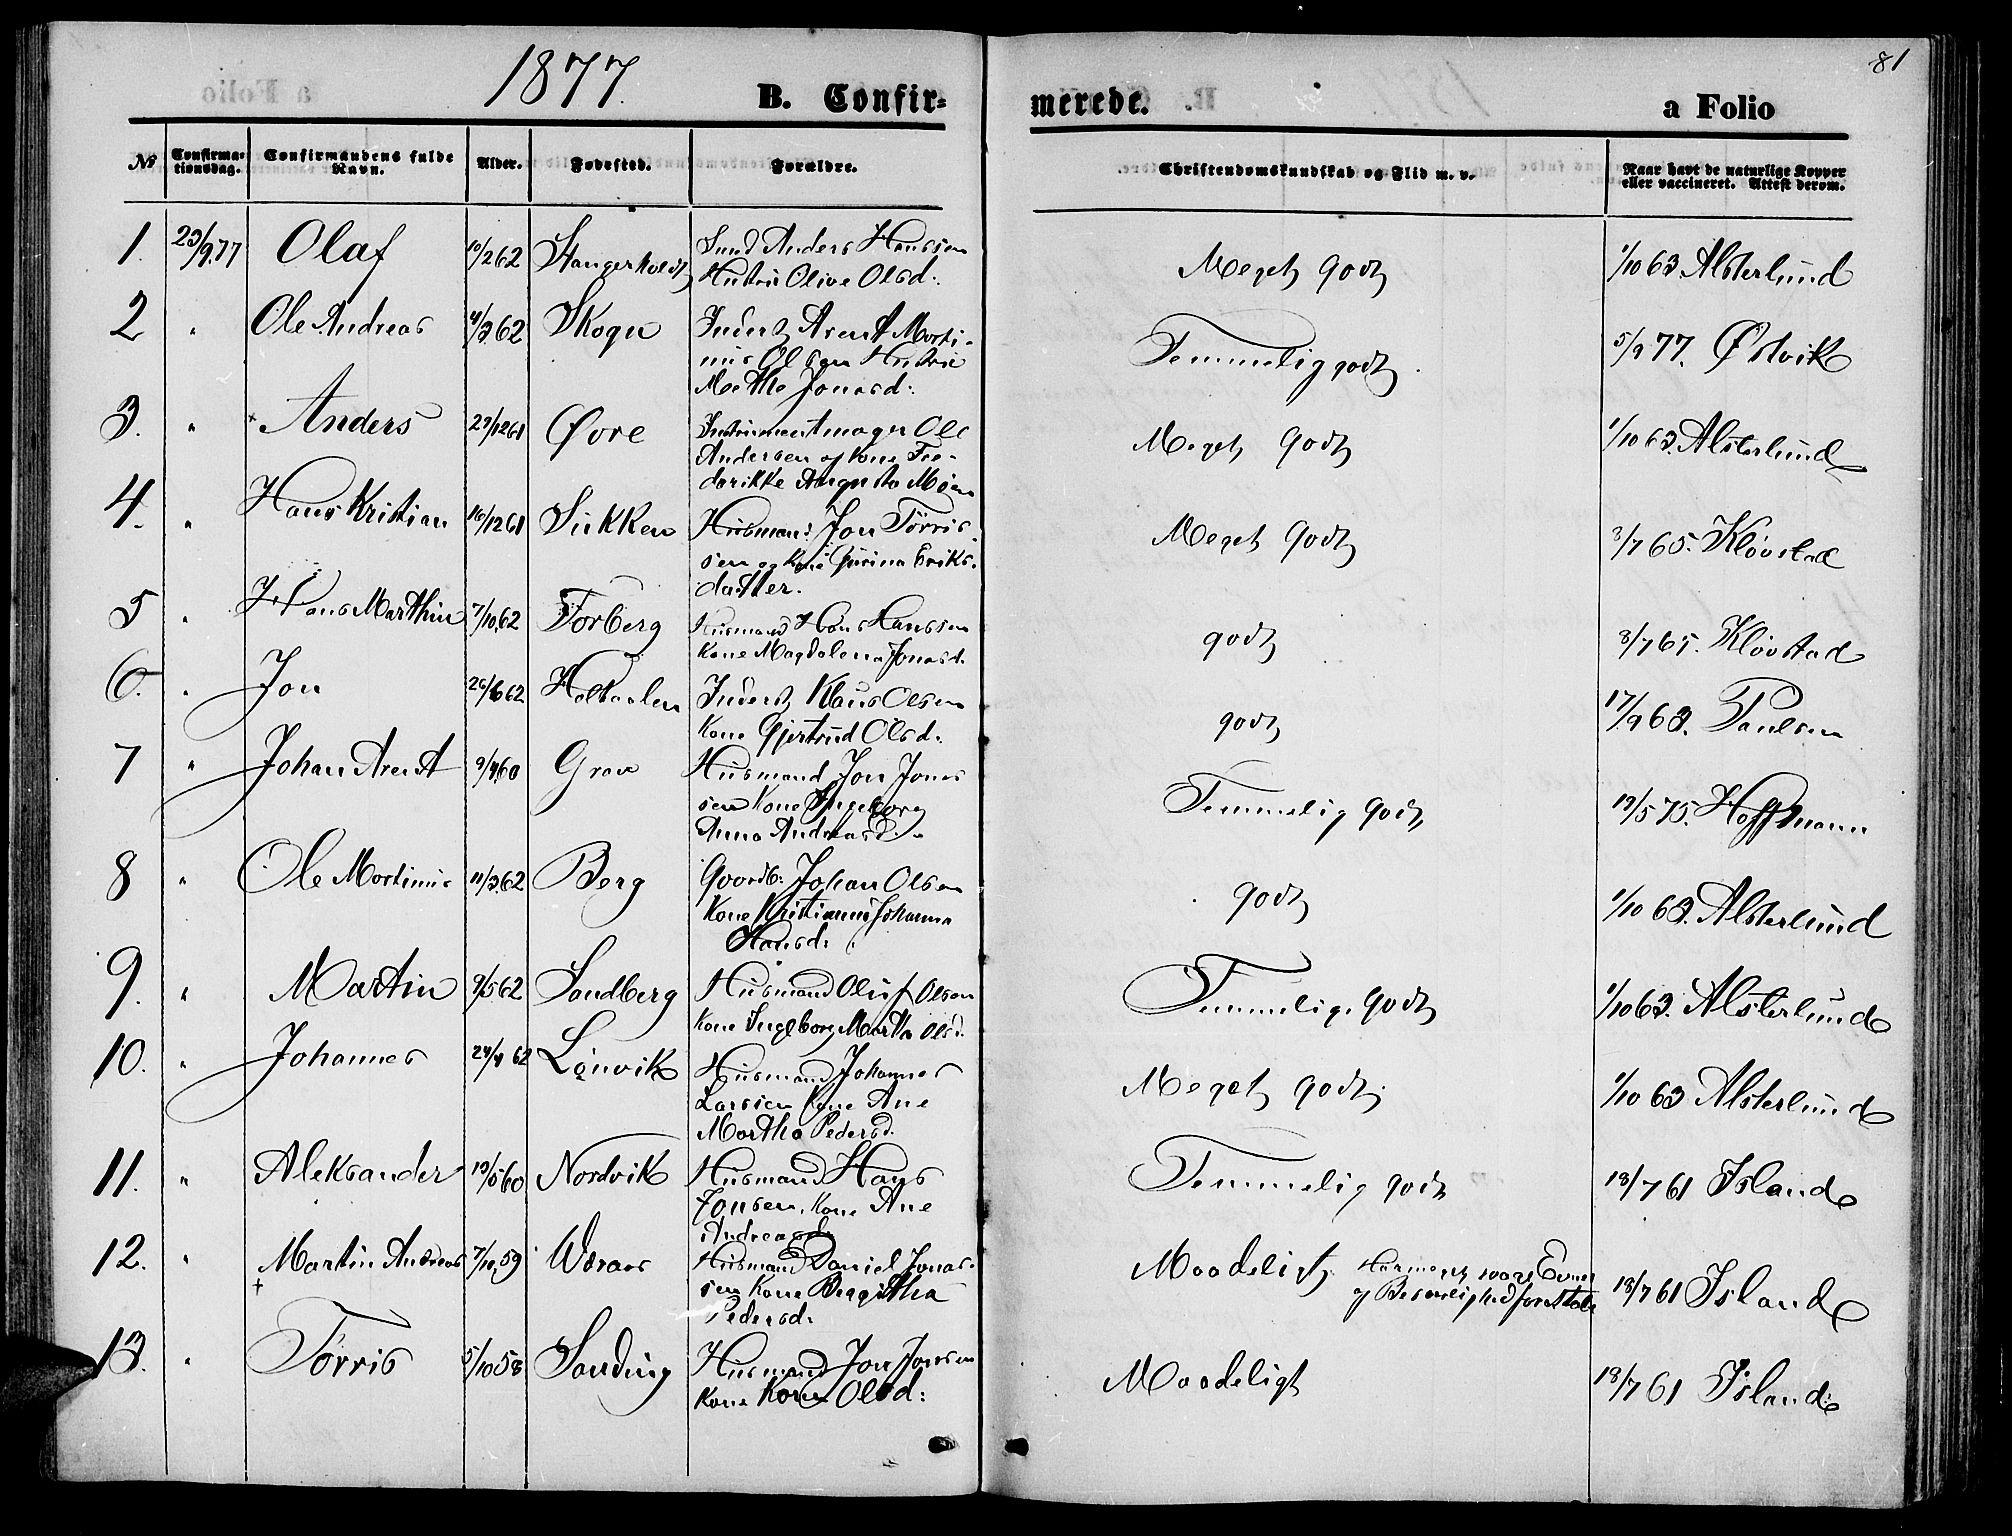 1877.
81
B. Confir=
merede.
a Folio
No
Confirma-
tionsdag.
Confirmandens fulde
Navn.
Alder.
Fødested.
Forældre.
Christendomskundskab og Flid m. v.
Naar havt de naturlige Kopper
eller vaccineret. Attest derom.
1. 23/9 77 Olaf 10/2 62 Anders Hanssen
Hustru Olive Olsd:
Meget godt 1/10 63 Alsterlund
2 " Ole Andreas 4/3 62 Skogn Inderst Arent Morti-
nus Olsen Hustru
Marthe Jonasd:
Temmelig godt. 5/9 77. Østvik
3. " Anders 27/12 61 Øvre Instrumentmager Ole
Andersen og Kone Fre-
derikke Augusta Moen
Meget godt 1/10 63. Alsterlund
4. " Hans Kristian 16/12 61 Husmand Jon Tørris-
sen og Kone Eriks-
datter.
Meget godt 8/7 65. Kløvstad
5 " Hans Marthin 7/10 62 Forberg Husmand Hans Hanssen
Kone Magdalena Jonasd.
godt 8/7 65. Kløvstad
6. " Jon 26/6 62 Inderst Klaus Olsen
Kone Gjertrud Olsd:
godt 17/9 63. Paulsen
7 " Johan Arent 9/4 60 Grave Husmand Jon Jonas
sen Kone Ingeborg
Anna Andreasd:
Temmelig godt, 19/5 75. Hoffmann
8 " Ole Mortinus 11/3 62 Berg Gaardb: Johan Olsen
Kone Johanna
Hansd:
godt 1/10 63. Alsterlund
9. " Martin 9/5 62 Sandberg Husmand Oluf Olsen
Kone Ingeborg Martha Olsd.
Temmelig godt 1/10 63. Alsterlund
10. " Johannes 24/4 62 Leinvik Husmand Johannes
Larssen Kone Ane
Martha Pedersd.
Meget godt. 1/10 63 Alsterlund
11. " Aleksander 19/5 60 Nordvik Husmand Hans
Jonsen, Kone Ane
Andreasd:
Temmelig godt 18/7 61 Island
12. " Martin Andreas 7/10 59 Husmand Daniel Jonas-
sen Kone Bergitha
Pedersd:
Maadeligt Har meget svage Evner
og
18/7 61 Island
13. " Tørris 5/10 58 Sanding Husmand Jon Jonsen
Kone Karen Olsd:
Maadeligt 18/7 61 Island